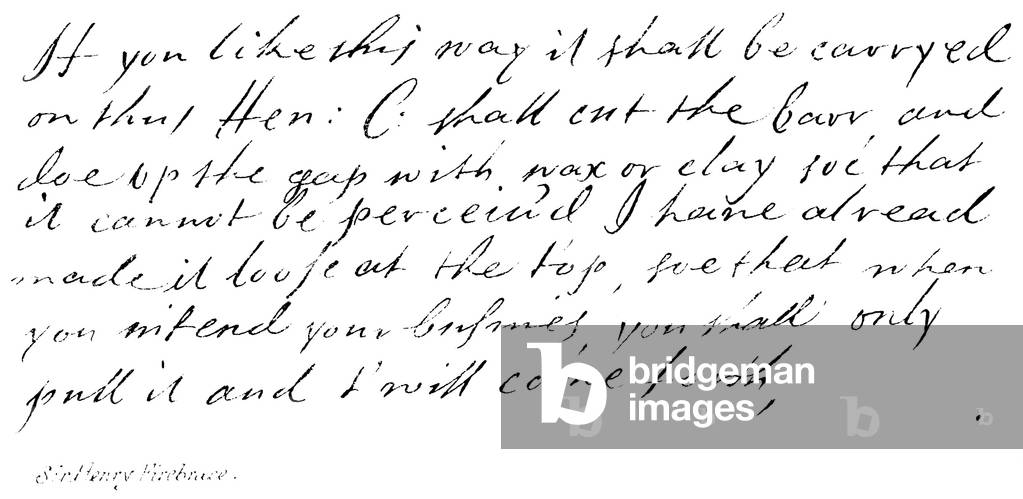 If you like this way it shall be carryed
on thus Hen: C: shall cut the barr, and
doe up the gap with wax or clay soe that
it cannot be perceiu'd I haue alread
made it loose at the top, soe that when
you intend your busines, you shall only
pull it and t'will come forth,
bridgeman
images
Sir Henry Firebrace.